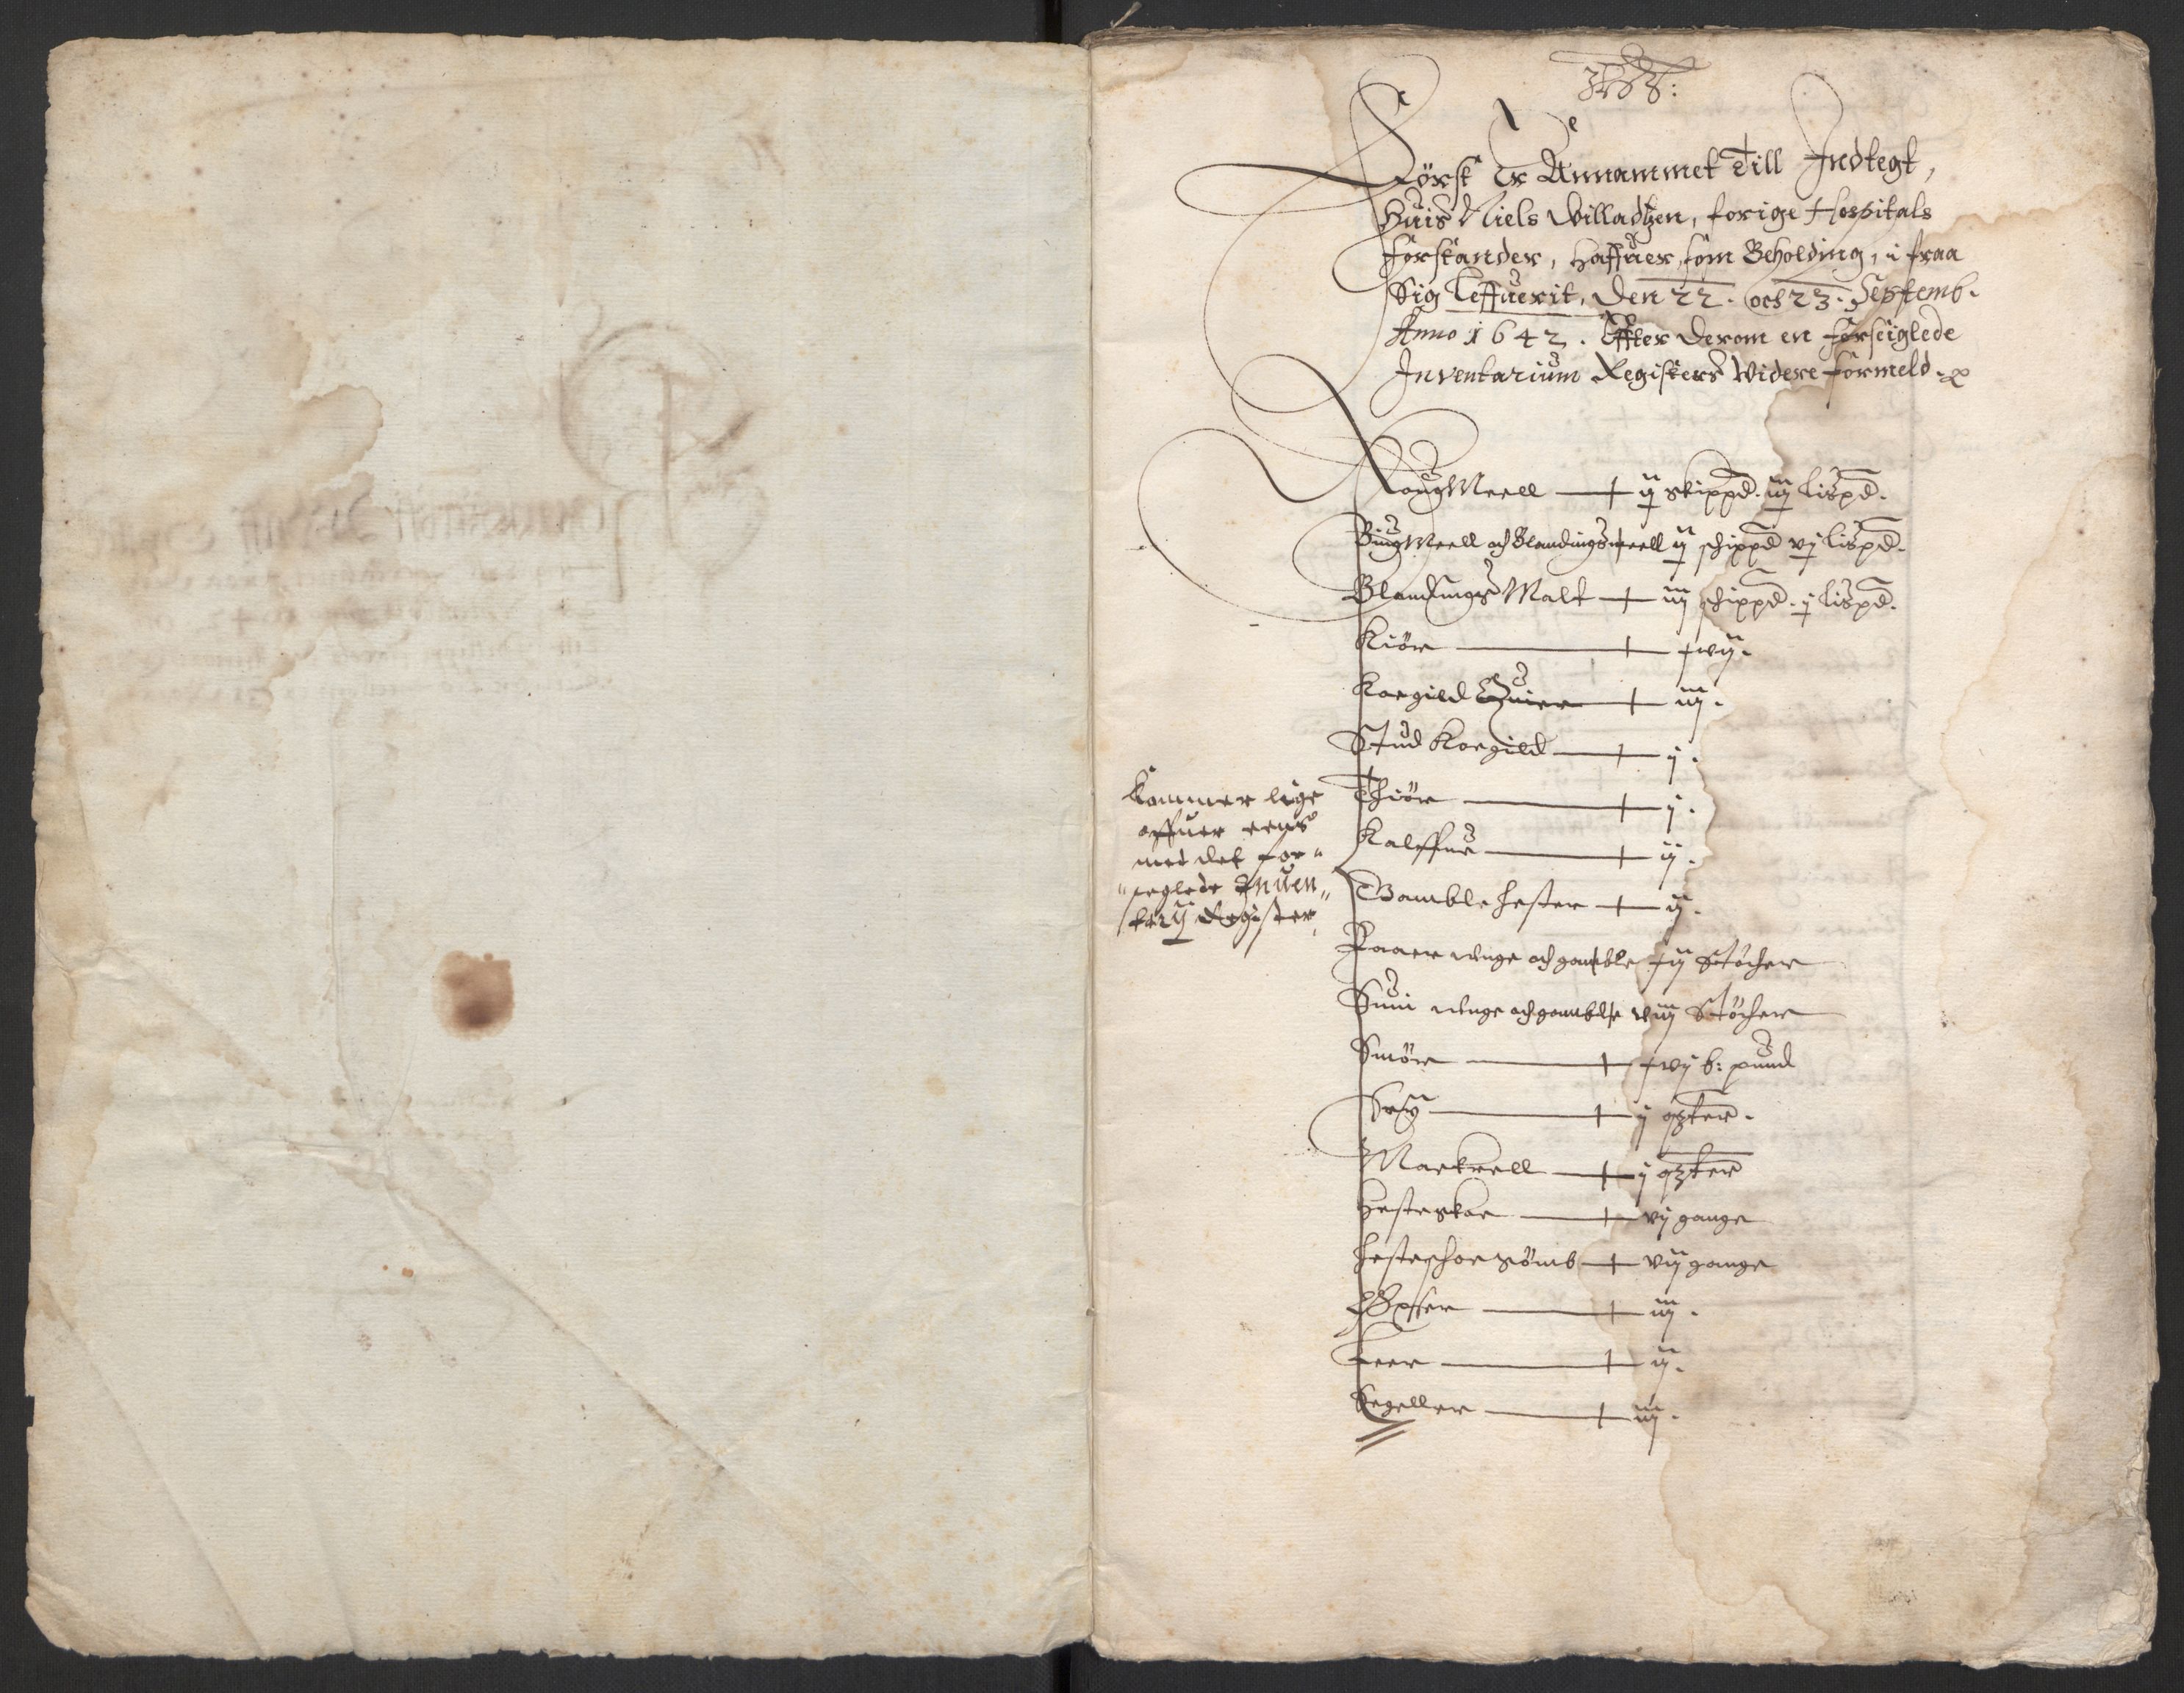 Först Er Annammet Till Indtegt,
Huis Niels Willadtzen, forige Hospitals
forstander, Haffuer som Beholding, i fraa
Sig Leffuerit, Den 22. och 23. Septemb.
Anno 1642. Effter Derom en forseiglede
Inventarium Registers Widere formeld.
Roug Meell — ij skippd. iij lispd.
Biug Meell och Blandings meell ij schippd vj lispd.
Blandings Malt — iiij schippd. j lispd.
Kiör — xvij.
Koegild Quier — iiij.
Stud Koegild — j.
Thiör — j.
Kalffue — ij.
Gamble Hester — ij.
Faaer unge och gamble xij Støcher
Suin unge och gamble viij Støcher
Smör — xvj b: pund
Sey — j qrter.
Mackrell — j qrter
Hesteskoe — vj gange
Hesteschoe sömb — vij gange
Öxser — iiij.
Leer — ij.
Segeller — iij.
Kommer lige
offuer eens
med det for-
seglede Inuen-
terij Register